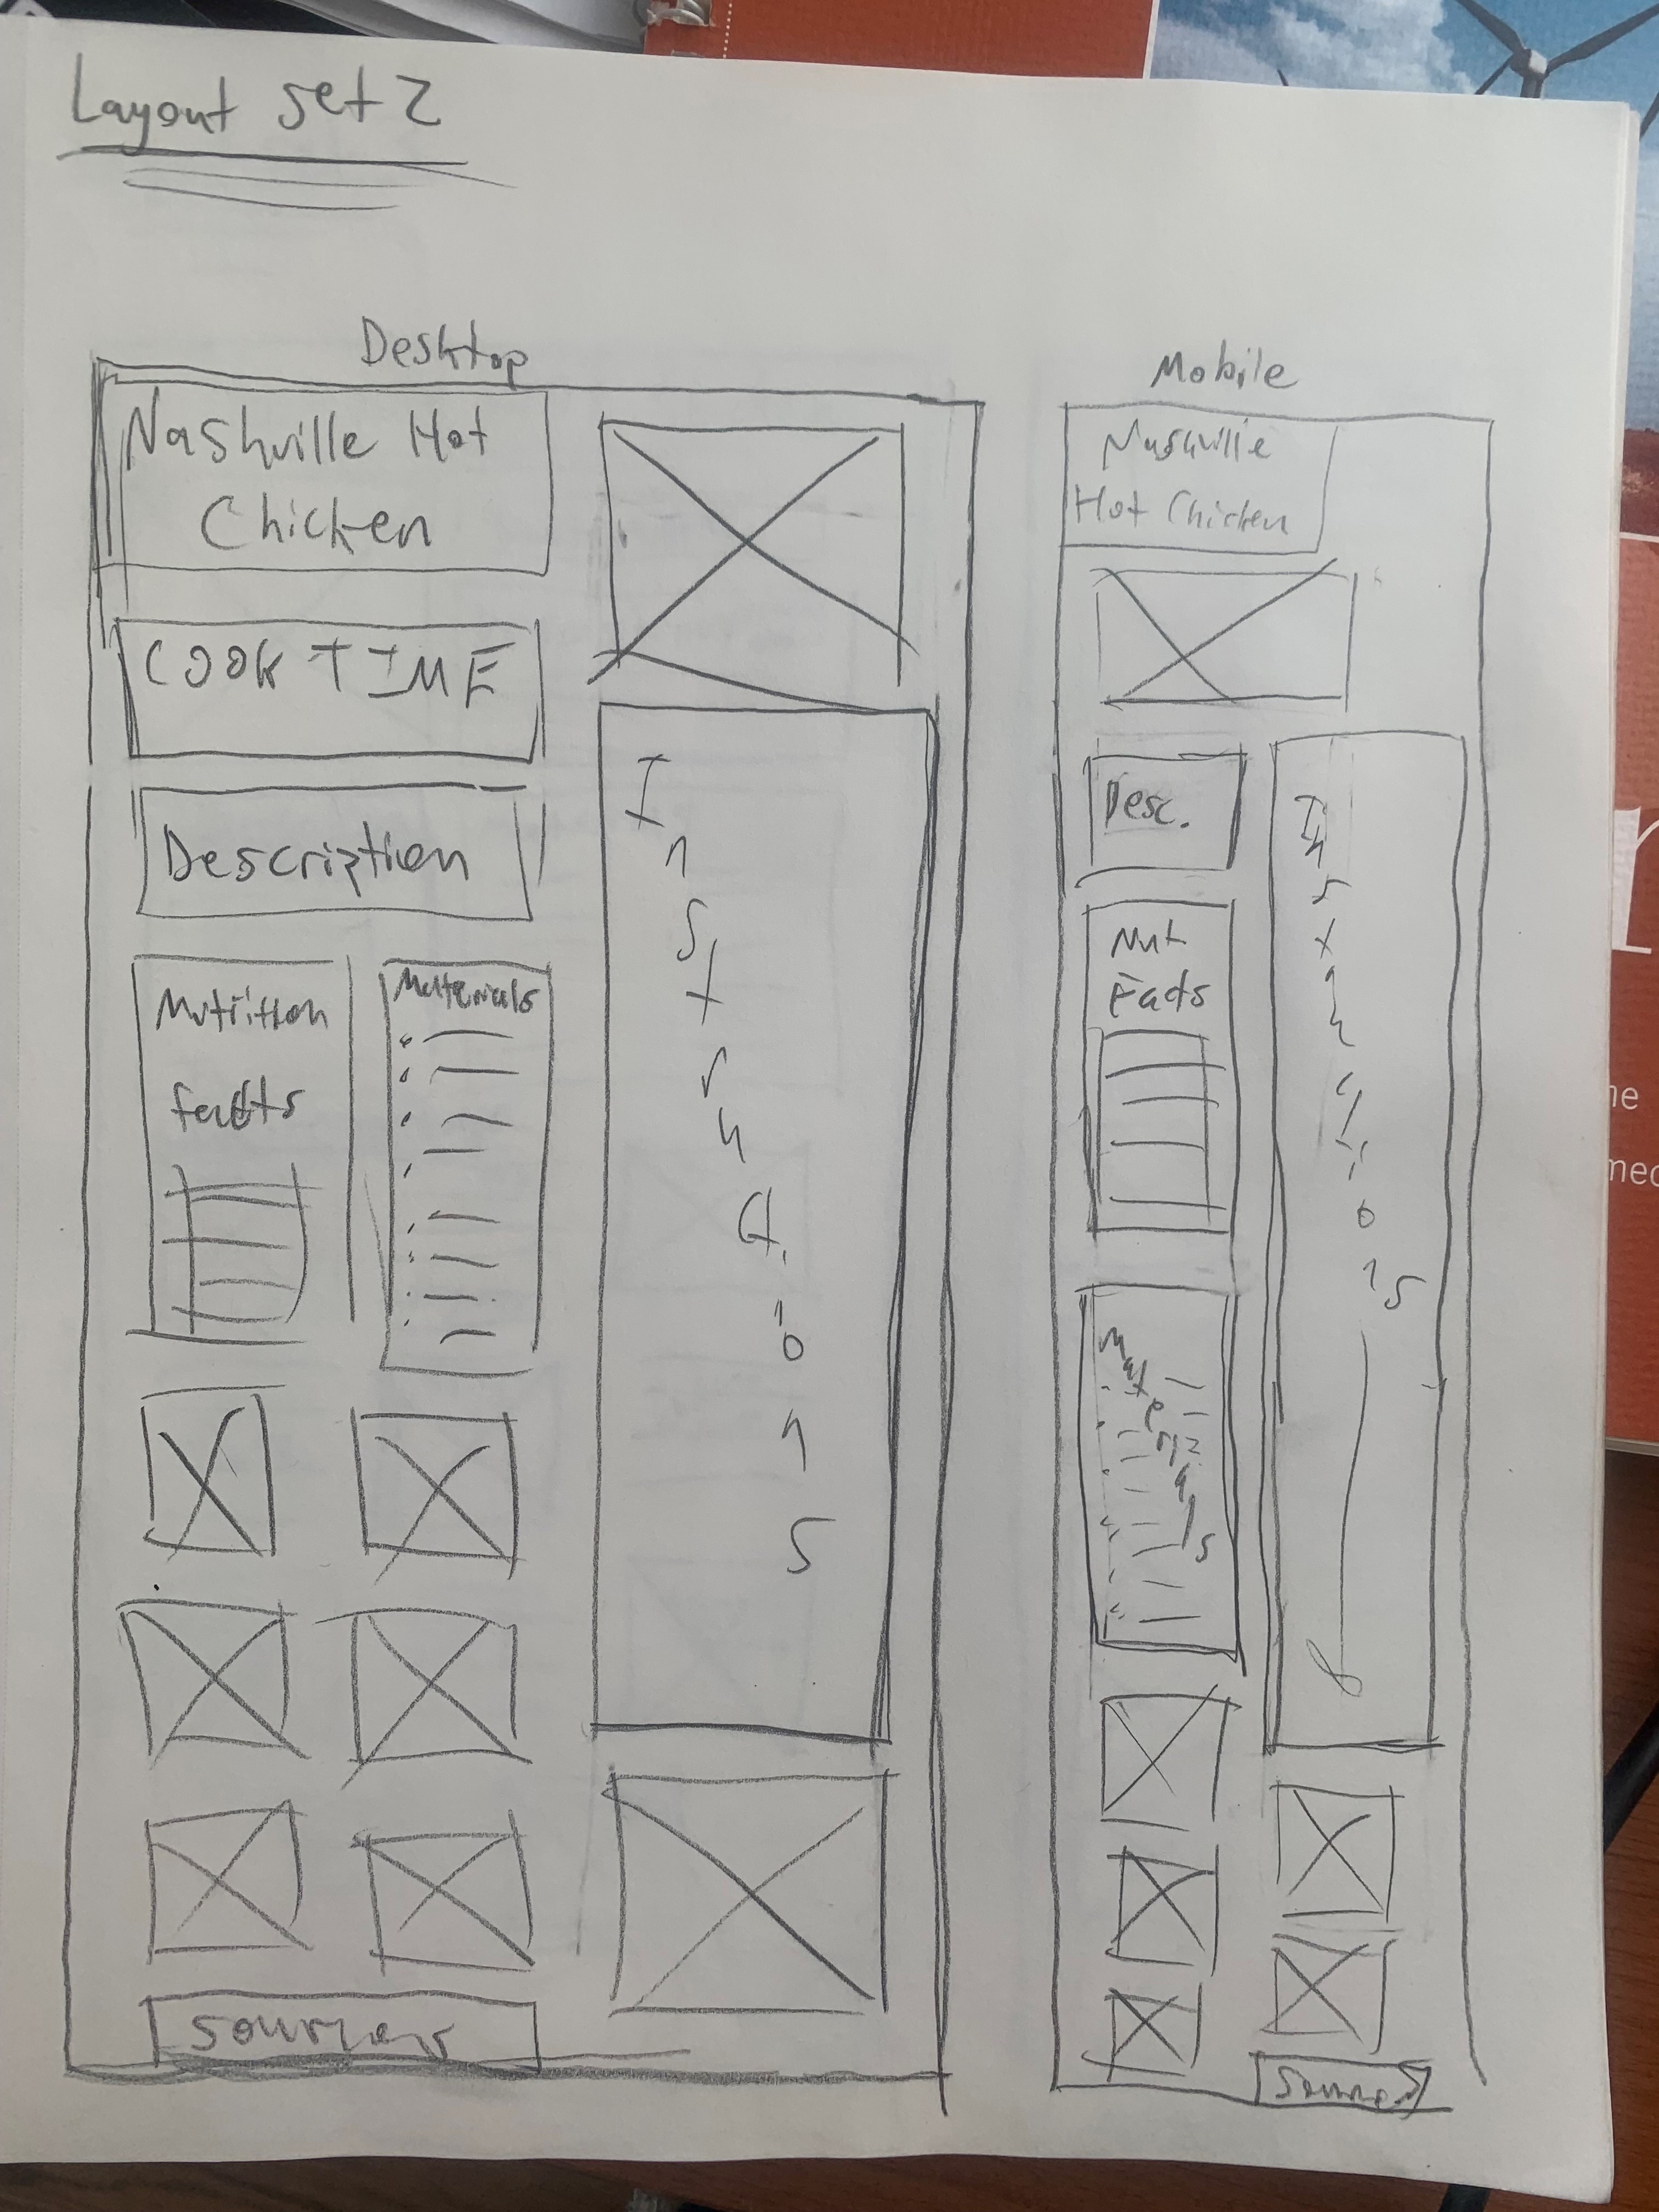 Layout Set 2
Desktop
Nashville Hot
Chicken
COOK TIME
Description
Nutrition
facts
Materials
Instructions
Sources
Mobile
Nashville
Hot Chicken
Desc.
Nut
Facts
Materials
Instructions
Sources
r
ne